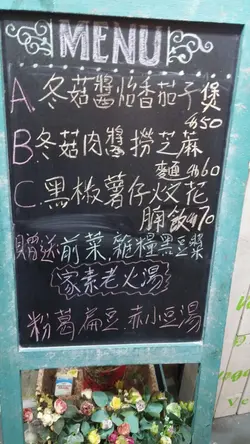 MENU
A. 冬菇醬怡香茄子煲
$50
B. 冬菇肉醬撈芝麻
麵 $60
C. 黑椒薯仔炆花
腩飯 $70
前菜, 雜糧黑豆漿
家素老火湯
粉葛扁豆.赤小豆湯